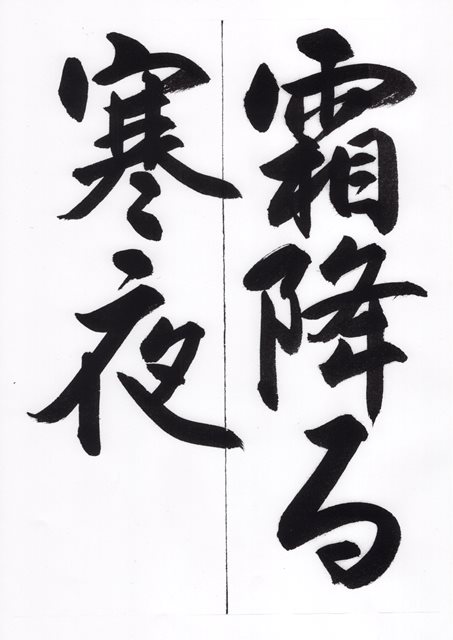 霜降る
寒夜